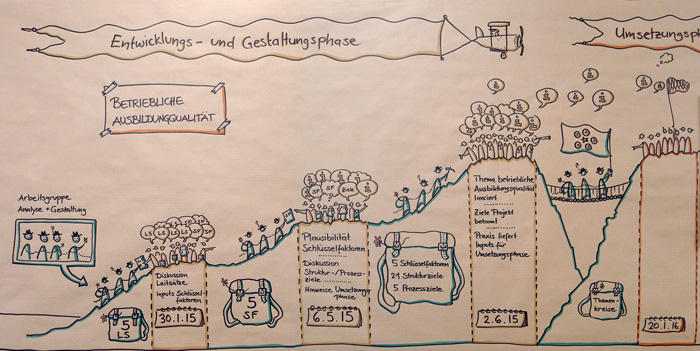 Entwicklungs- und Gestaltungsphase
Umsetzungsph
BETRIEBLICHE
AUSBILDUNGQUALITÄT
Arbeitsgruppe
Analyse + Gestaltung
LS
LS
LS
LS
SF
SF
SF
5
LS
Diskussion
Leitsätze
Inputs Schlüssel-
faktoren
30.1.15
5
SF
SF
SF
Ziele
Plausibilität
Schlüsselfaktoren
Diskussion
Struktur-/Prozess-
ziele
Hinweise Umsetzungs-
phase
6.5.15
5 Schlüsselfaktoren
21 Strukturziele
5 Prozessziele
Thema betriebliche
Ausbildungsqualität
lanciert
Ziele Projekt
bekannt
Praxis liefert
Inputs für
Umsetzungsphase
2.6.15
Themen-
kreise
20.1.16